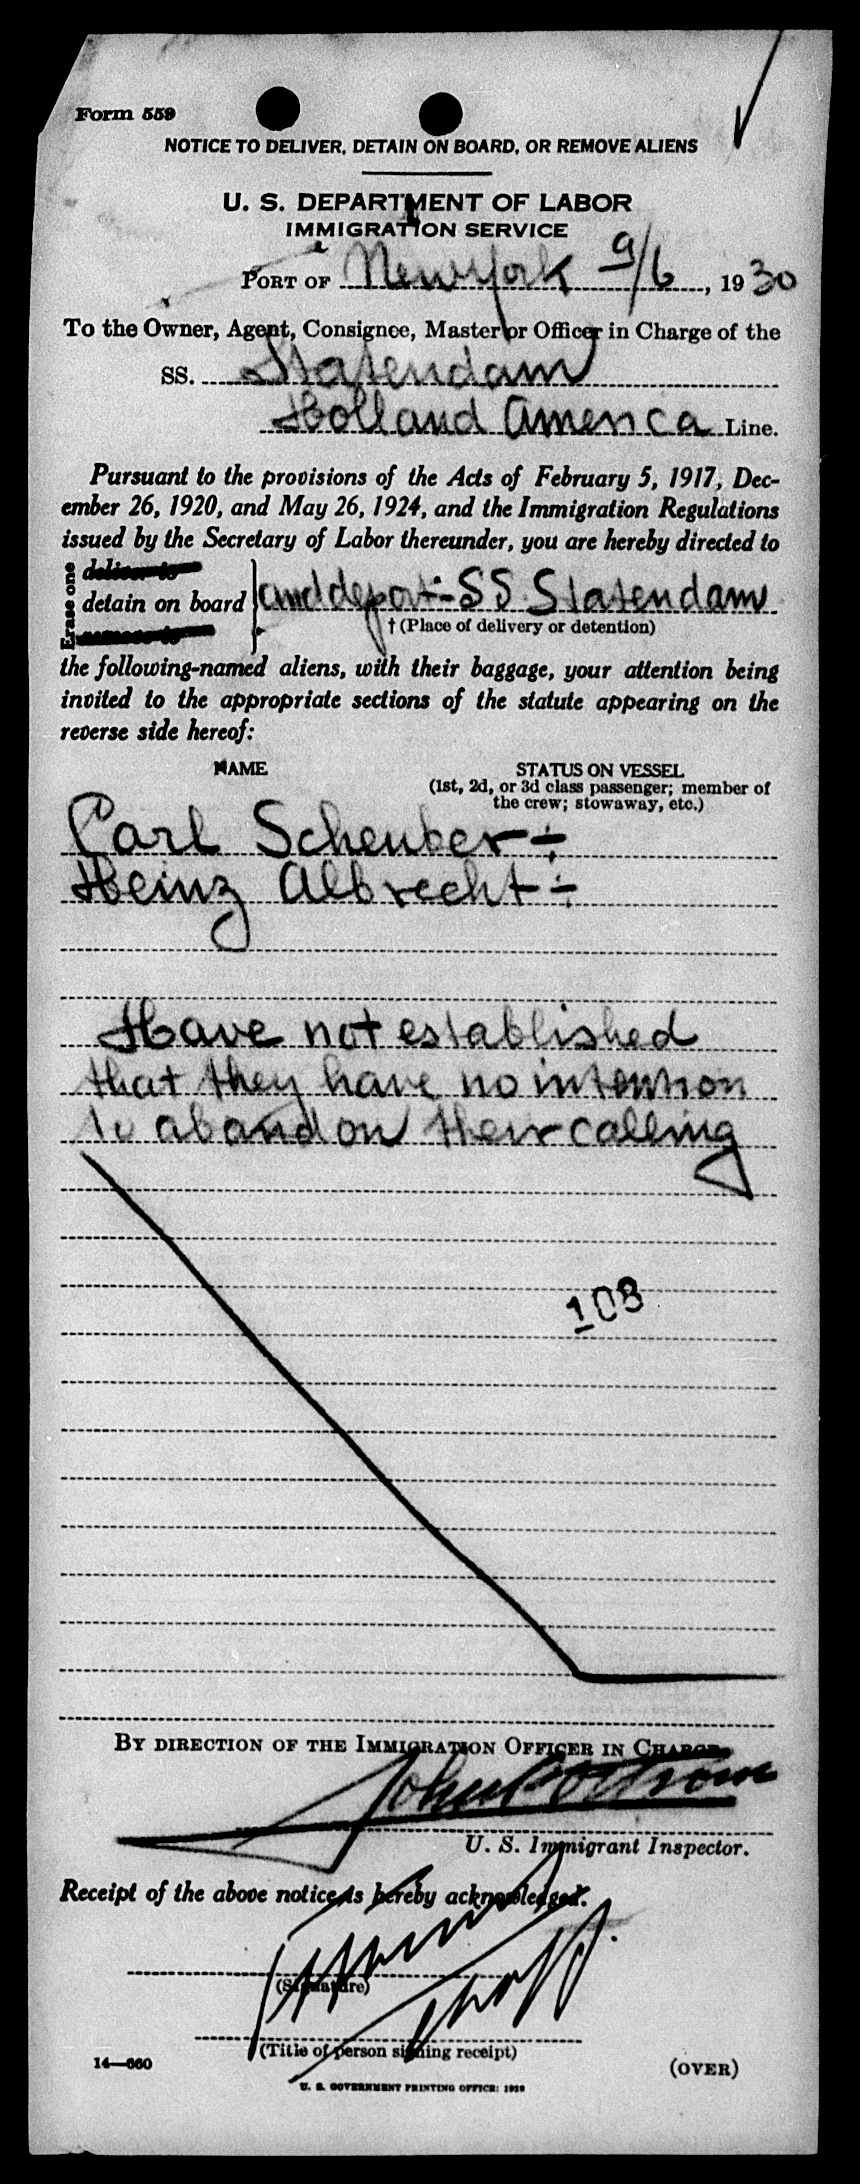 Form 559
NOTICE TO DELIVER, DETAIN ON BOARD, OR REMOVE ALIENS
U. S. DEPARTMENT OF LABOR
IMMIGRATION SERVICE
PORT OF New York 9/6, 1930
To the Owner, Agent, Consignee, Master or Officer in Charge of the
SS. Statendam
Holland America Line.
Pursuant to the provisions of the Acts of February 5, 1917, Dec-
ember 26, 1920, and May 26, 1924, and the Immigration Regulations
issued by the Secretary of Labor thereunder, you are hereby directed to
Erase one
deliver to
detain on board and deport:- SS Statendam
remove to
† (Place of delivery or detention)
the following-named aliens, with their baggage, your attention being
invited to the appropriate sections of the statute appearing on the
reverse side hereof:
NAME STATUS ON VESSEL
(1st, 2d, or 3d class passenger; member of
the crew; stowaway, etc.)
Carl Scheuber ÷
Heinz Albrecht ÷
Have not established
that they have no intention
to abandon their calling
108
BY DIRECTION OF THE IMMIGRATION OFFICER IN CHARGE
John
U. S. Immigrant Inspector.
Receipt of the above notice is hereby acknowledged.
(Signature)
(Title of person signing receipt)
14—660
(OVER)
U. S. GOVERNMENT PRINTING OFFICE: 1929